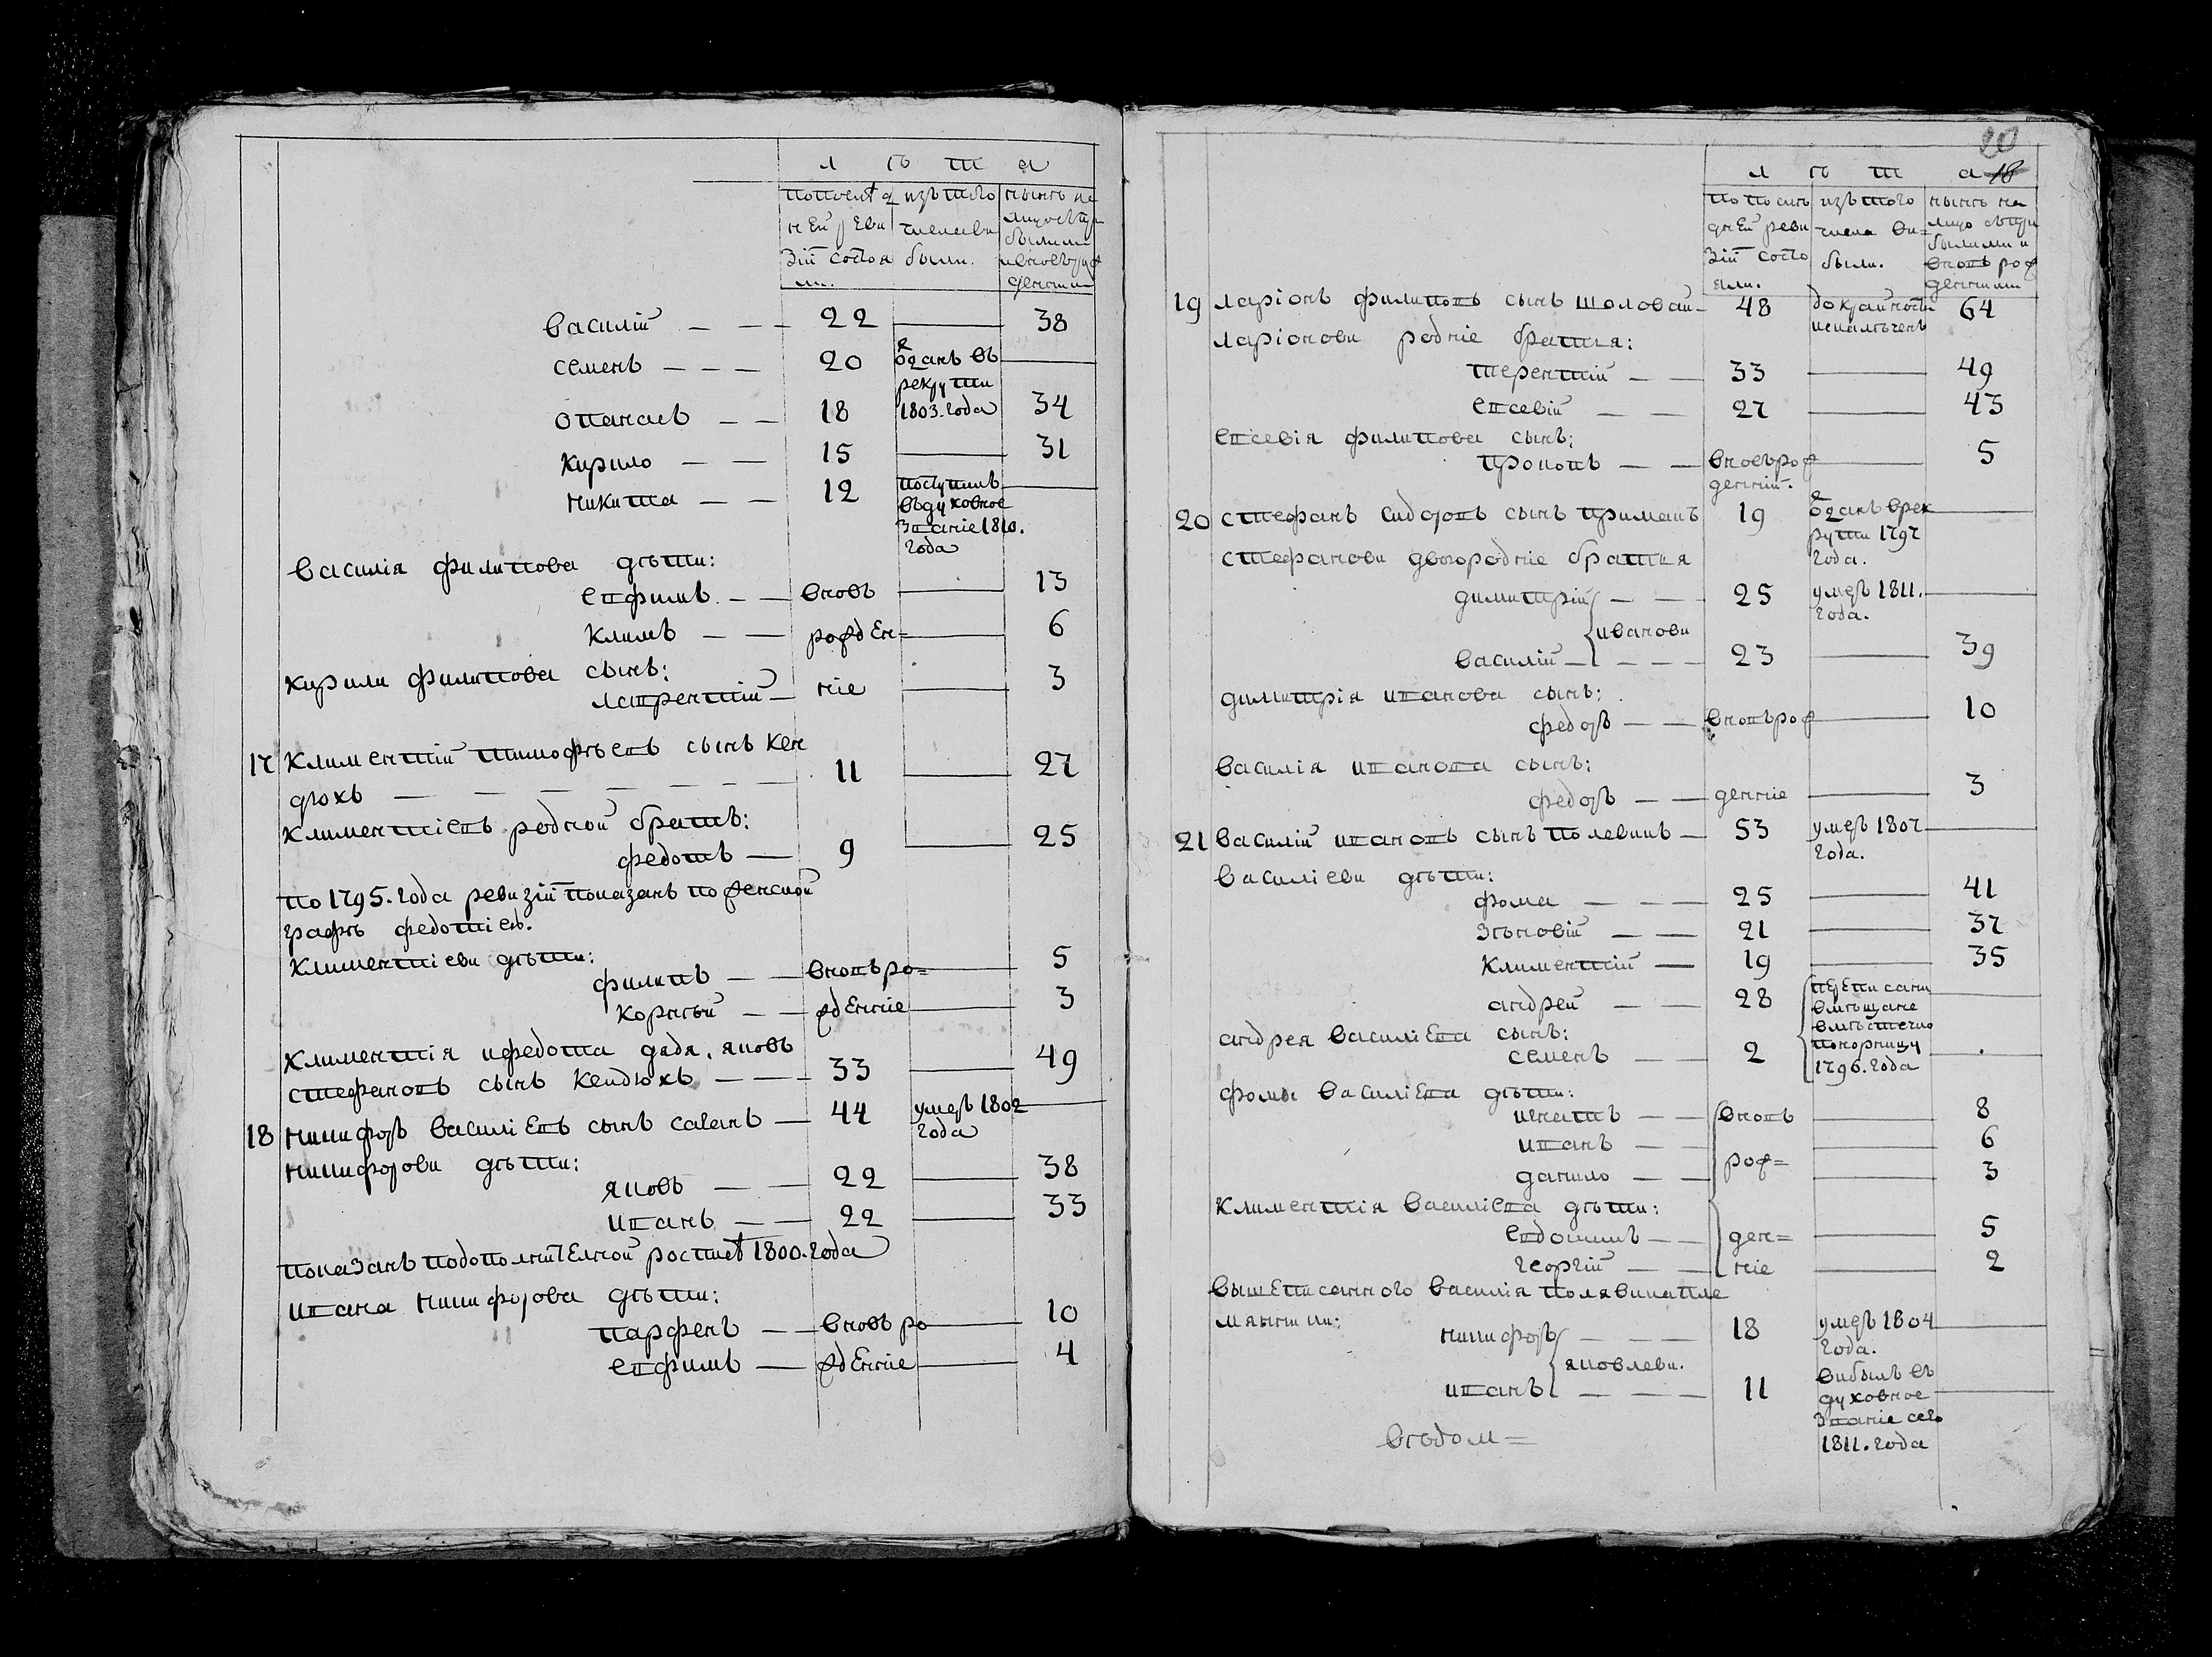 Л Ѣ Т А
по послѣд
ней реви
зіи состоя
ли.
изъ того
числа вы
были.
нынѣ на
лицо съ при
былыми
и вновь рож
денными
Василій — — 22 — 38
Семенъ — — — 20 отданъ въ
рекруты
1803. года
Опанасъ — — 18 34
Кирило — — 15 — 31
Никита — — 12 поступилъ
въ духовное
званіе 1810.
года
Василія Филипова дѣти:
Евфимъ — — вновь — 13
Климъ — — рожден= — 6
Кирили Филипова сынъ:
Лаврентій — ніе — 3
17 Климентій Тимофѣевъ сынъ Кен
дюхъ — — — — — — 11 — 27
Климентіевъ родной братъ:
Федотъ — 9 — 25
по 1795. года ревизіи показанъ по женской
графѣ Федотіею.
Климентіеви дѣти:
Филипъ — — вновь ро= — 5
Корнѣй — — жденніе — 3
Климентія и Федота дядя, Яковъ
Стефановъ сынъ Кендюхъ — — 33 — 49
18 Никифоръ Василіевъ сынъ Саганъ — 44 умеръ 1802
года
Никифорови дѣти:
Яковъ — — 22 — 38
Иванъ — — 22 — 33
показанъ по дополнителной роспис 1800. года
Ивана Никифорова дѣти:
Парфенъ — — вновь ро — 10
Евфимъ — жденніе — 4
20
Л Ѣ Т А 18
по послѣ
дней реви
зіи состо
яли.
изъ того
числа вы=
были.
нынѣ на
лицо съ при
былыми и
вновь рож
денными
19 Ларіонъ Филиповъ сынъ Шоловай — 48 до крайности
искалѣченъ 64
Ларіонови родніе братья:
Терентій — — 33 — 49
Евсевій — — 27 — 43
Евсевія Филипова сынъ:
Прокопъ — — вновь рож
денній. — 5
20 Стефанъ Сидоровъ сынъ Примакъ 19 отданъ в рек
руты 1797
года.
Стефанови двоюродніе братья
Димитрій — — 25 умеръ 1811.
года.
Иванови
Василій — — — 23 — 39
Димитрія Иванова сынъ:
Федоръ — — вновь рож — 10
Василія Иванова сынъ:
Федоръ — — денніе — 3
21 Василій Ивановъ сынъ Полевикъ — 53 умеръ 1807
года.
Василіеви дѣти:
Фома — — — 25 — 41
Зѣновій — — 21 — 37
Климентій — 19 — 35
Андрей — — 28 переписаны
в мѣщане
в мѣстечко
Понорницу
1796. года
Андрея Василіева сынъ:
Семенъ — — 2
Фомы Василіева дѣти:
Игнатъ — — вновь — 8
Иванъ — — 6
Данило — — рож= — 3
Климентія Василіева дѣти:
Евдокимъ — — ден= — 5
Георгій — — ніе — 2
Вышеписанного Василія Полявика пле
мянники:
Никифоръ — — — 18 умеръ 1804
года.
Яковлеви.
Иванъ — — — 11 выбылъ въ
духовное
званіе сего
1811. года
Вѣдом=